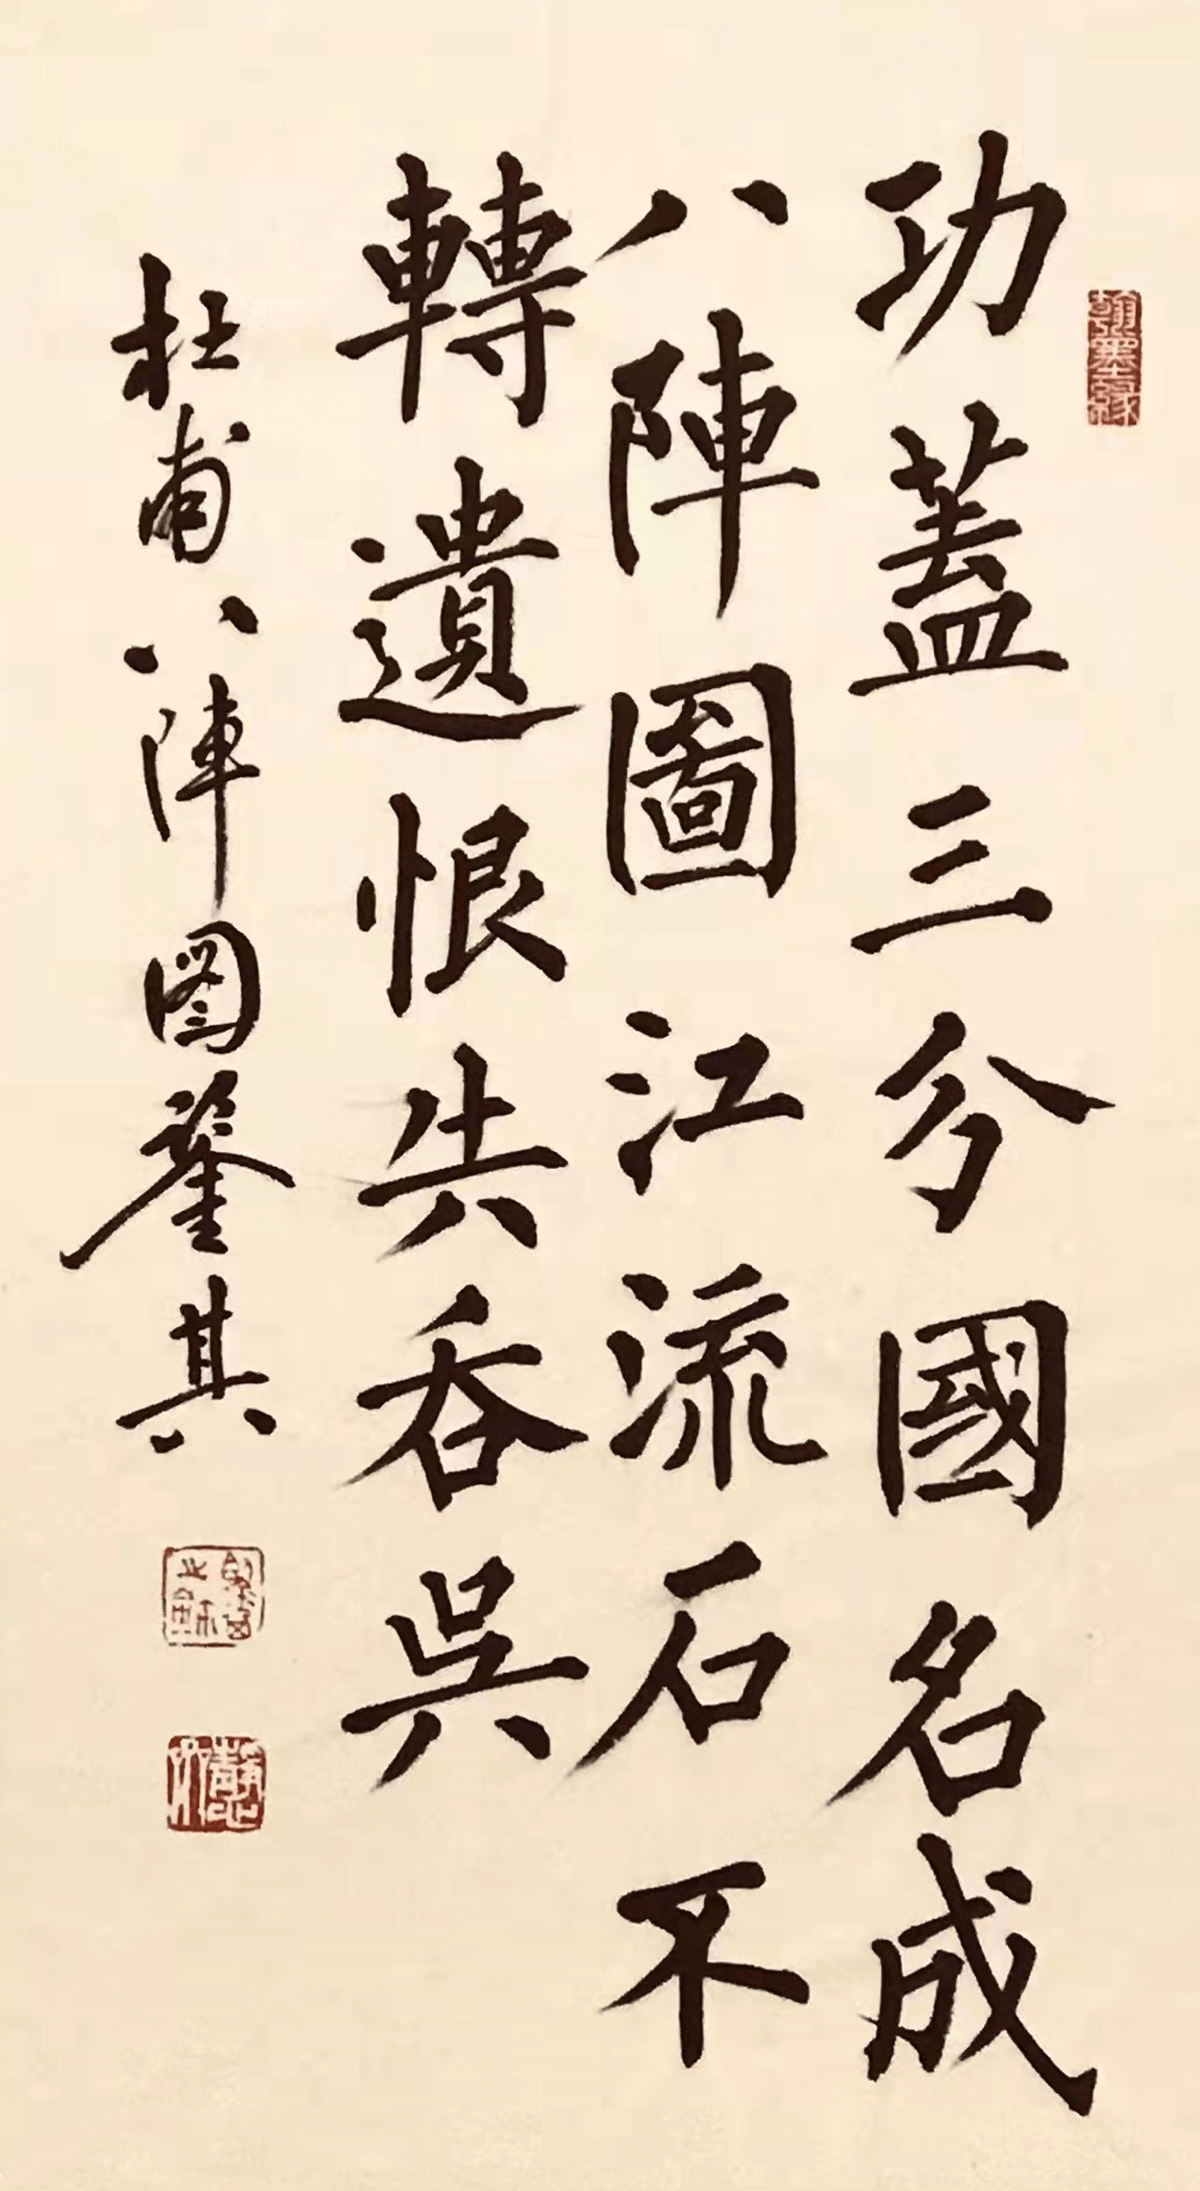 翰墨緣
功蓋三分國名成
八陣圖江流石不
轉遺恨失吞吳
杜甫八陣图其